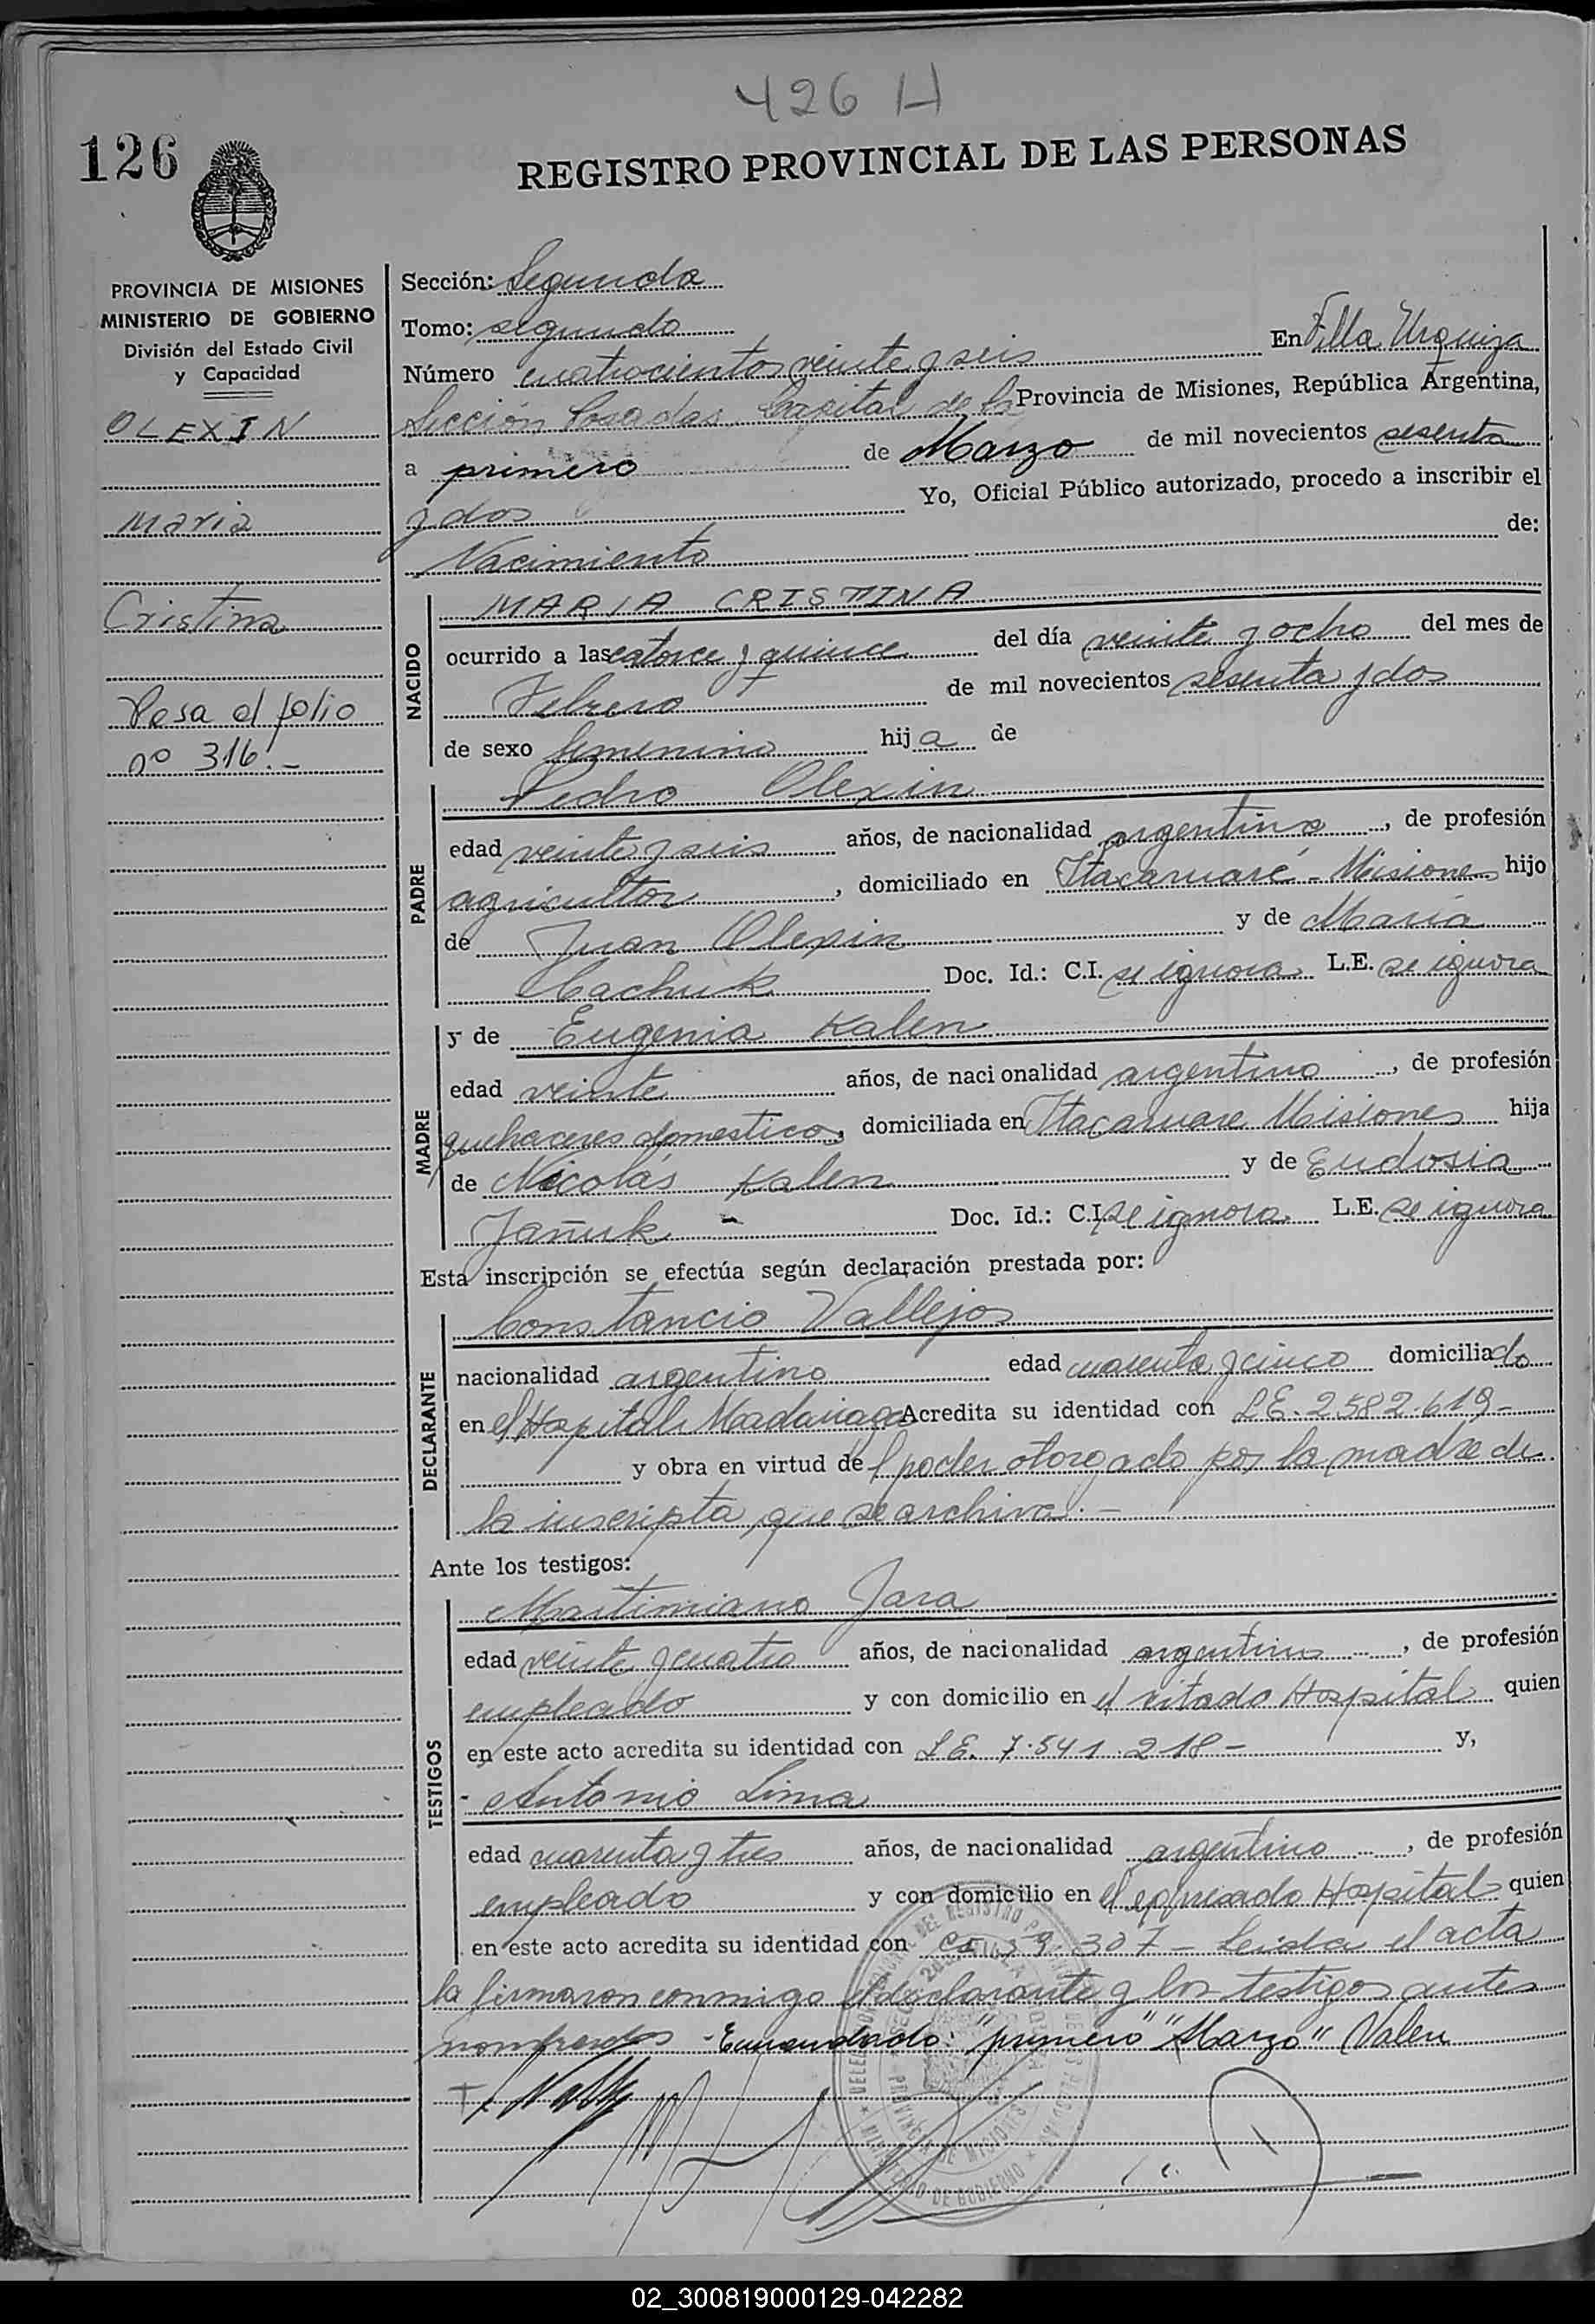 426 H
126
REGISTRO PROVINCIAL DE LAS PERSONAS
PROVINCIA DE MISIONES
MINISTERIO DE GOBIERNO
División del Estado Civil
y Capacidad
OLEXIN
Maria
Cristina
Pasa al folio
nº 316.-
Sección: Segunda
Tomo: segundo
Número cuatrocientos veinte y seis En Villa Urquiza
Sección Posadas Capital de la Provincia de Misiones, República Argentina,
a primero de Marzo de mil novecientos sesenta
y dos Yo, Oficial Público autorizado, procedo a inscribir el
Nacimiento de:
NACIDO
MARIA CRISTINA
ocurrido a las catorce y quince del día veinte y ocho del mes de
Febrero de mil novecientos sesenta y dos
de sexo femenino hija de
PADRE
Pedro Olexin
edad veinte y seis años, de nacionalidad argentino, de profesión
agricultor, domiciliado en Itacaruaré - Misiones hijo
de Juan Olexin y de María
Cachuk Doc. Id.: C.I. se ignora L.E. se ignora
MADRE
y de Eugenia Kalen
edad veinte años, de nacionalidad argentina, de profesión
quehaceres domestico, domiciliada en Itacaruare Misiones hija
de Nicolás Kalen y de Eudosia
Jañuk - Doc. Id.: C.I. se ignora L.E. se ignora
Esta inscripción se efectúa según declaración prestada por:
DECLARANTE
Constancio Vallejos
nacionalidad argentino edad cuarenta y cinco domiciliado
en el Hospital Madariaga Acredita su identidad con L.E. 2582.619-
y obra en virtud del poder otorgado por la madre de
la inscripta que se archiva.-
Ante los testigos:
TESTIGOS
Martimiano Jara
edad veinte y cuatro años, de nacionalidad argentino, de profesión
empleado y con domicilio en el citado Hospital quien
en este acto acredita su identidad con L.E. 7.541.218- y,
- Antonio Lima
edad cuarenta y tres años, de nacionalidad argentino, de profesión
empleado y con domicilio en el expresado Hospital quien
en este acto acredita su identidad con 39.307 - Leida el acta
la firmaron conmigo el declarante y los testigos antes
nombrados - Enmendado: "primero" "Marzo" Valen
02_300819000129-042282